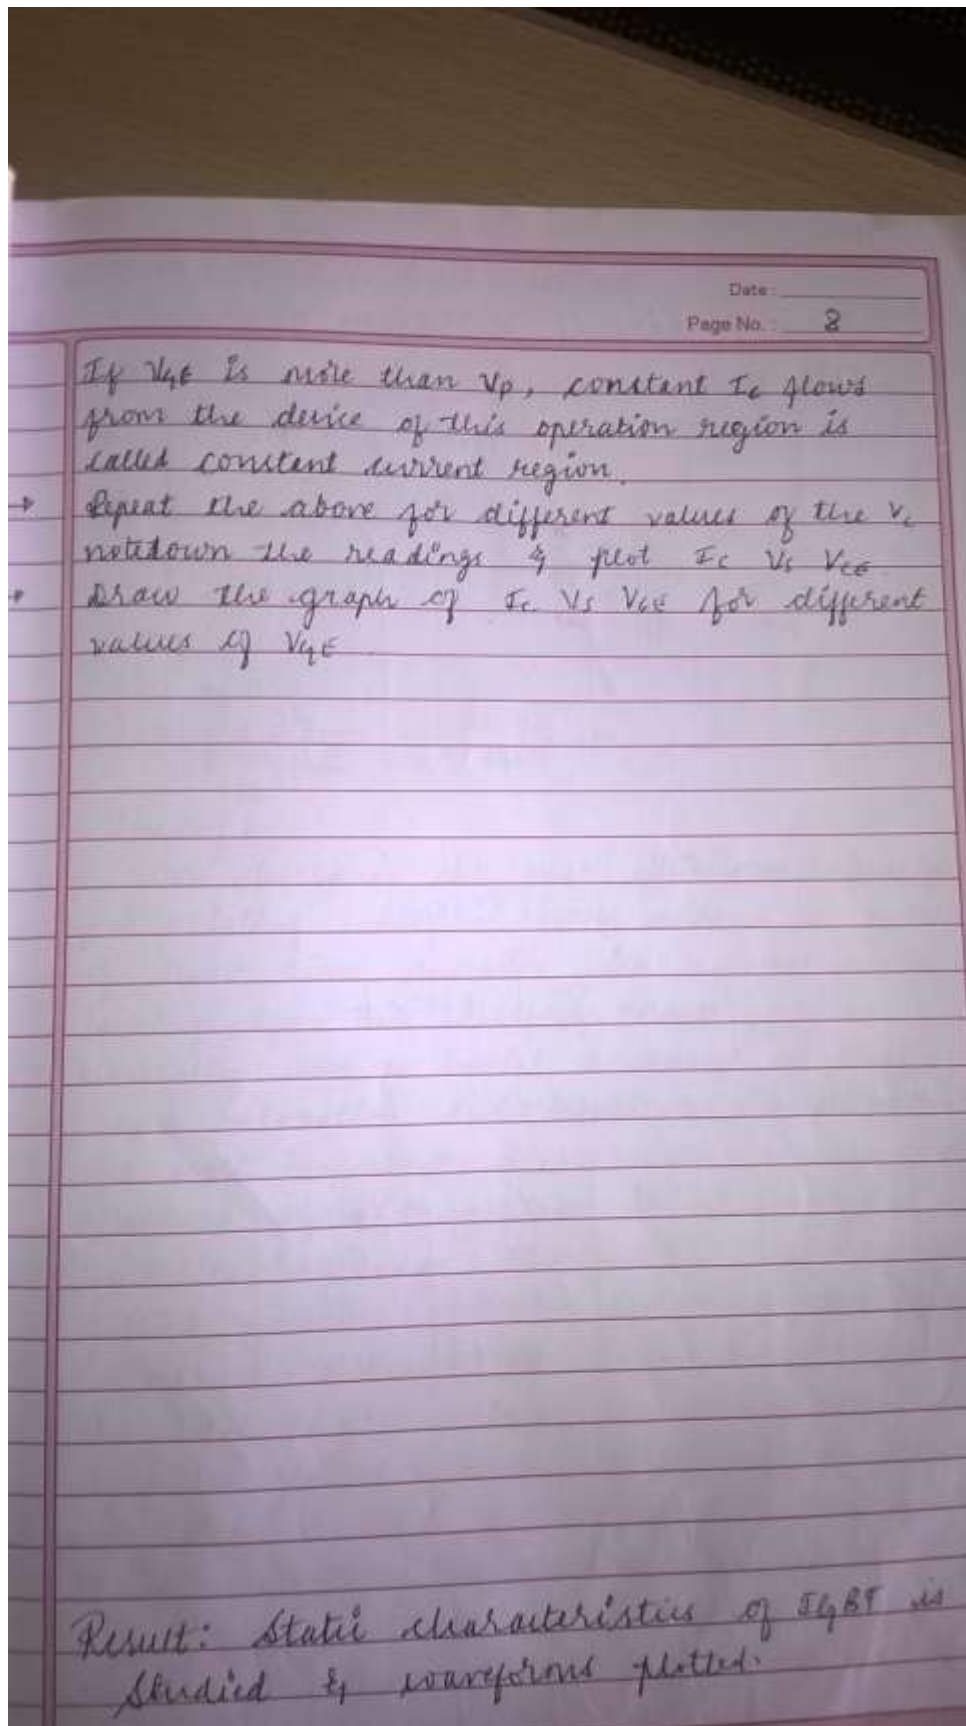 Date :
Page No. : 8
If VGE is more than Vp, constant Ic flows
from the device of this operation region is
called constant current region.
→ Repeat the above for different values of the Vc
notedown the readings & plot Ic Vs VCE
→ Draw the graph of Ic Vs VCE for different
values of VGE
Result: Static characteristics of IGBT is
Studied & waveforms plotted.